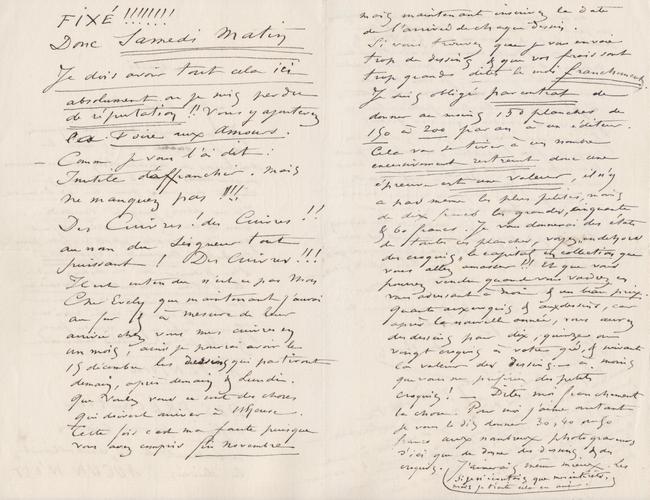 FIXÉ !!!!!!!!
Donc Samedi Matin
Je dois avoir tout cela ici
absolument ou je suis perdu
de réputation !! Vous y ajouterez
la Foire aux Amours.
Comme je vous l'ai dit :
Inutile d'affranchir. Mais
ne manquez pas !!!
Des Cuivres ! des Cuivres !!
au nom du Seigneur tout
puissant ! Des Cuivres !!!
Il est entendu n'est ce pas Mon
Cher Evely que maintenant j'aurai
au fur & à mesure de leur
arrivée chez vous mes cuivres en
un mois, ainsi je pourrai avoir le
15 décembre les dessins qui partiront
demain, après demain & Lundi.
que voulez vous ce sont des choses
qui doivent arriver à
Cette fois c'est ma faute puisque
vous avez compris fin Novembre
mais maintenant inscrivez la date
de l'arrivée de chaque dessin.
Si vous trouvez que je vous envoie
trop de dessins, & que vos frais sont
trop grands dites le moi franchement.
Je suis obligé par contrat de
donner au moins 150 planches de
150 à 200 par an à un éditeur.
Cela va se tirer à un nombre
excessivement restreint donc une
épreuve est une valeur, il n'y
a pas même les plus petites, moins
de dix francs les grandes, cinquante
& 60 francs. Je vous donnerai des états
de toutes ces planches, voyez en dehors
des croquis, le capital en collection que
vous allez amasser !!! Et que vous
pourrez vendre quand vous voudrez en
vous adressant à moi & un beau prix.
Quant aux croquis & aux dessins, car
après la nouvelle année, vous aurez
des dessins pour dix, quinze ou
vingt croquis à votre gré, & suivant
la valeur des dessins — à moins
que vous ne préfériez des petits
croquis ! — Dites moi franchement
la chose. Pour moi j'aime autant
je vous le dis, donner 30, 40 ou 50
francs aux nombreux photograveurs
d'ici que de donner des dessins, & des
croquis. J'aimerais même mieux.
Si je n'écoutais que mes intérêts,
mais je traite cela en ami.